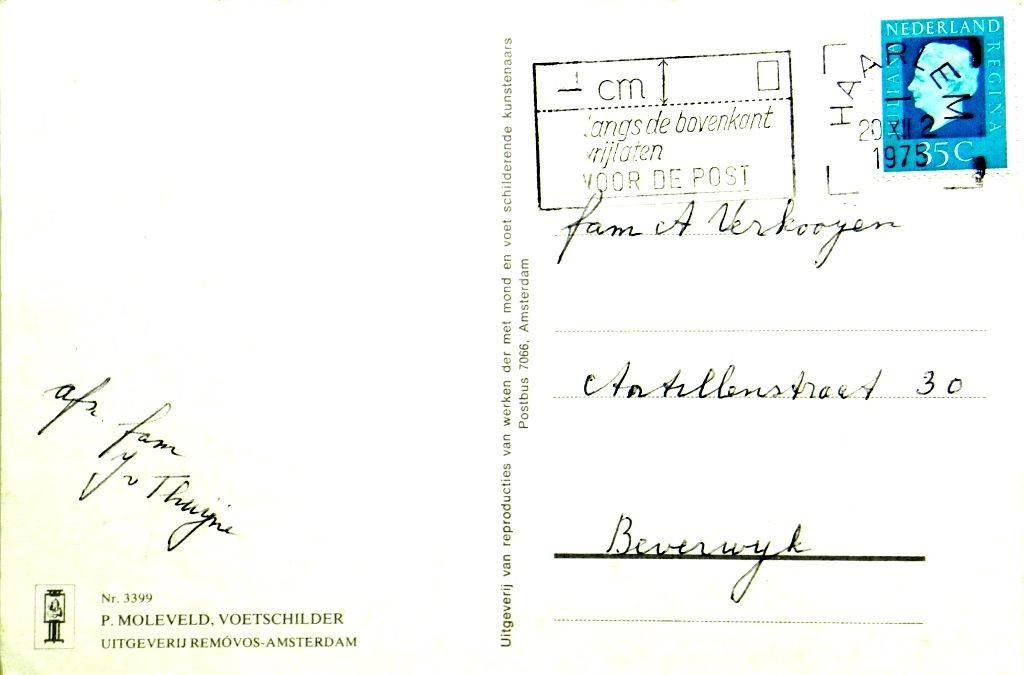 afz. fam
J v Thuijne
Nr. 3399
P. MOLEVELD, VOETSCHILDER
UITGEVERIJ REMÓVOS-AMSTERDAM
Uitgeverij van reproducties van werken der met mond en voet schilderende kunstenaars
Postbus 7066, Amsterdam
1 cm
langs de bovenkant
vrijlaten
VOOR DE POST
HAARLEM
20 XII 2
1975
NEDERLAND
JULIANA REGINA
35 C
fam A Verkooyen
Antillenstraat 30
Beverwyk